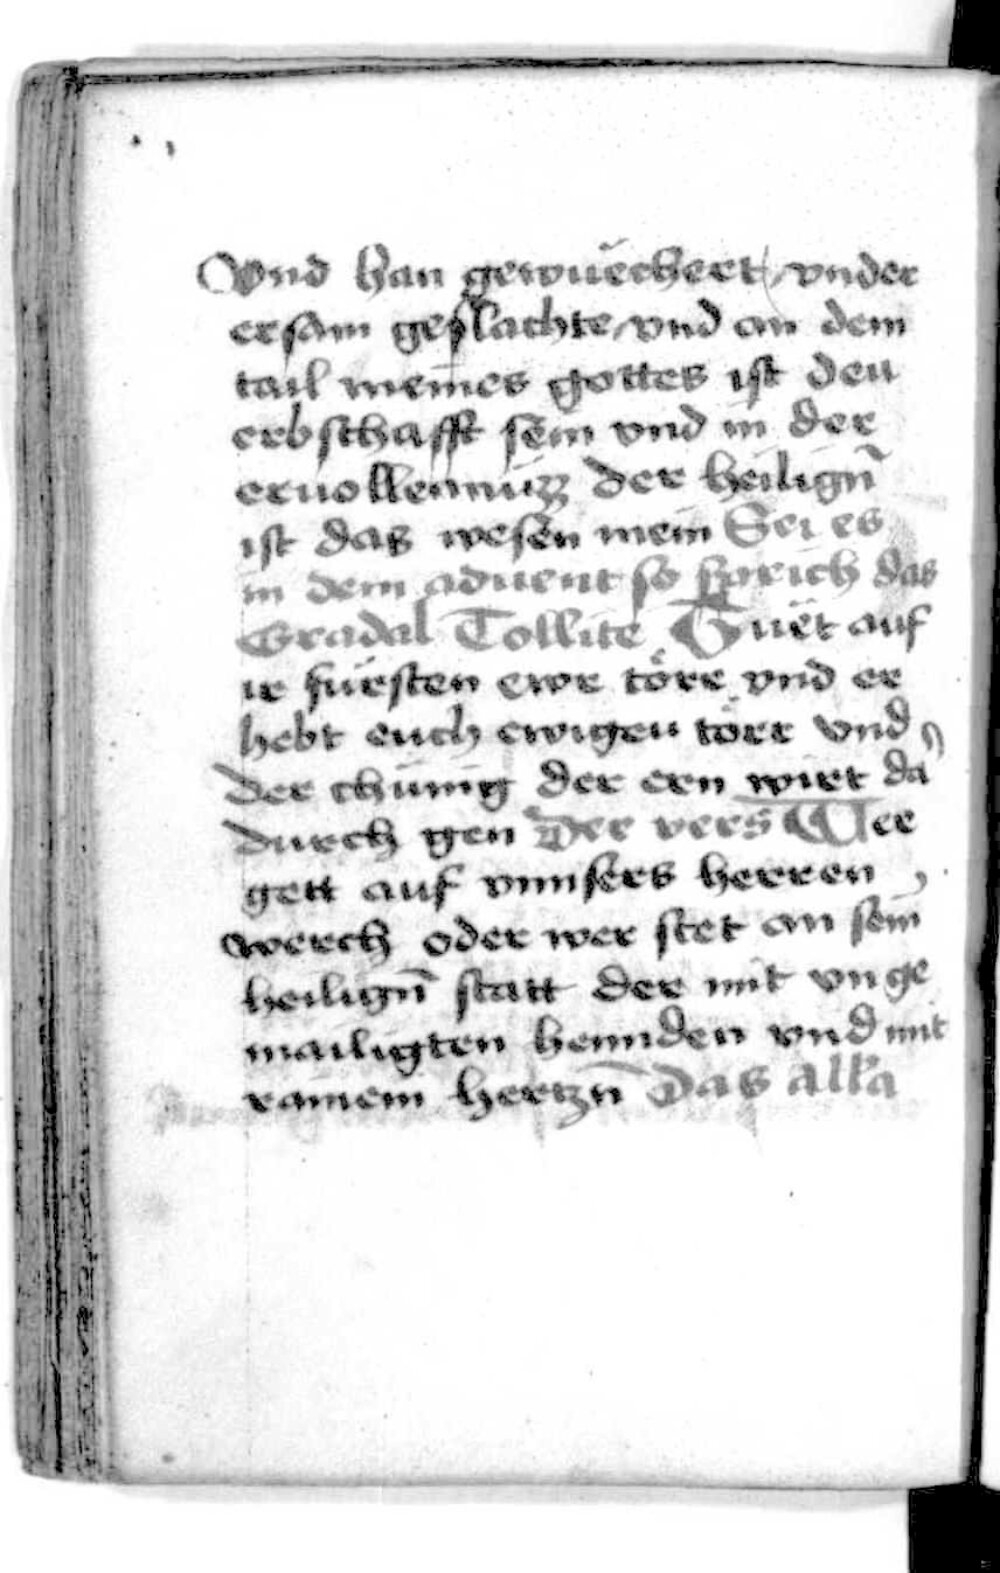 Vnd han gewuͤrchert vnder
ersam geslachte vnd an dem
tail meines gottes ist den
erbschafft sein vnd in der
eruollennüzz der heiligñ
ist das wesen mein Sei es
in dem aduent so sprich das
Gradal Tollite Tuͤet auf
ir fürsten ewr törr vnd er
hebt euch ewigen törr vnd
der chünig der ern wirt da
durch gen Der vers Wer
gett auf vnnsers herren
werch oder wer stet an sein
heiligñ statt der mit vnge
mailigten hennden vnd mit
rainem hertzñ Das all'a